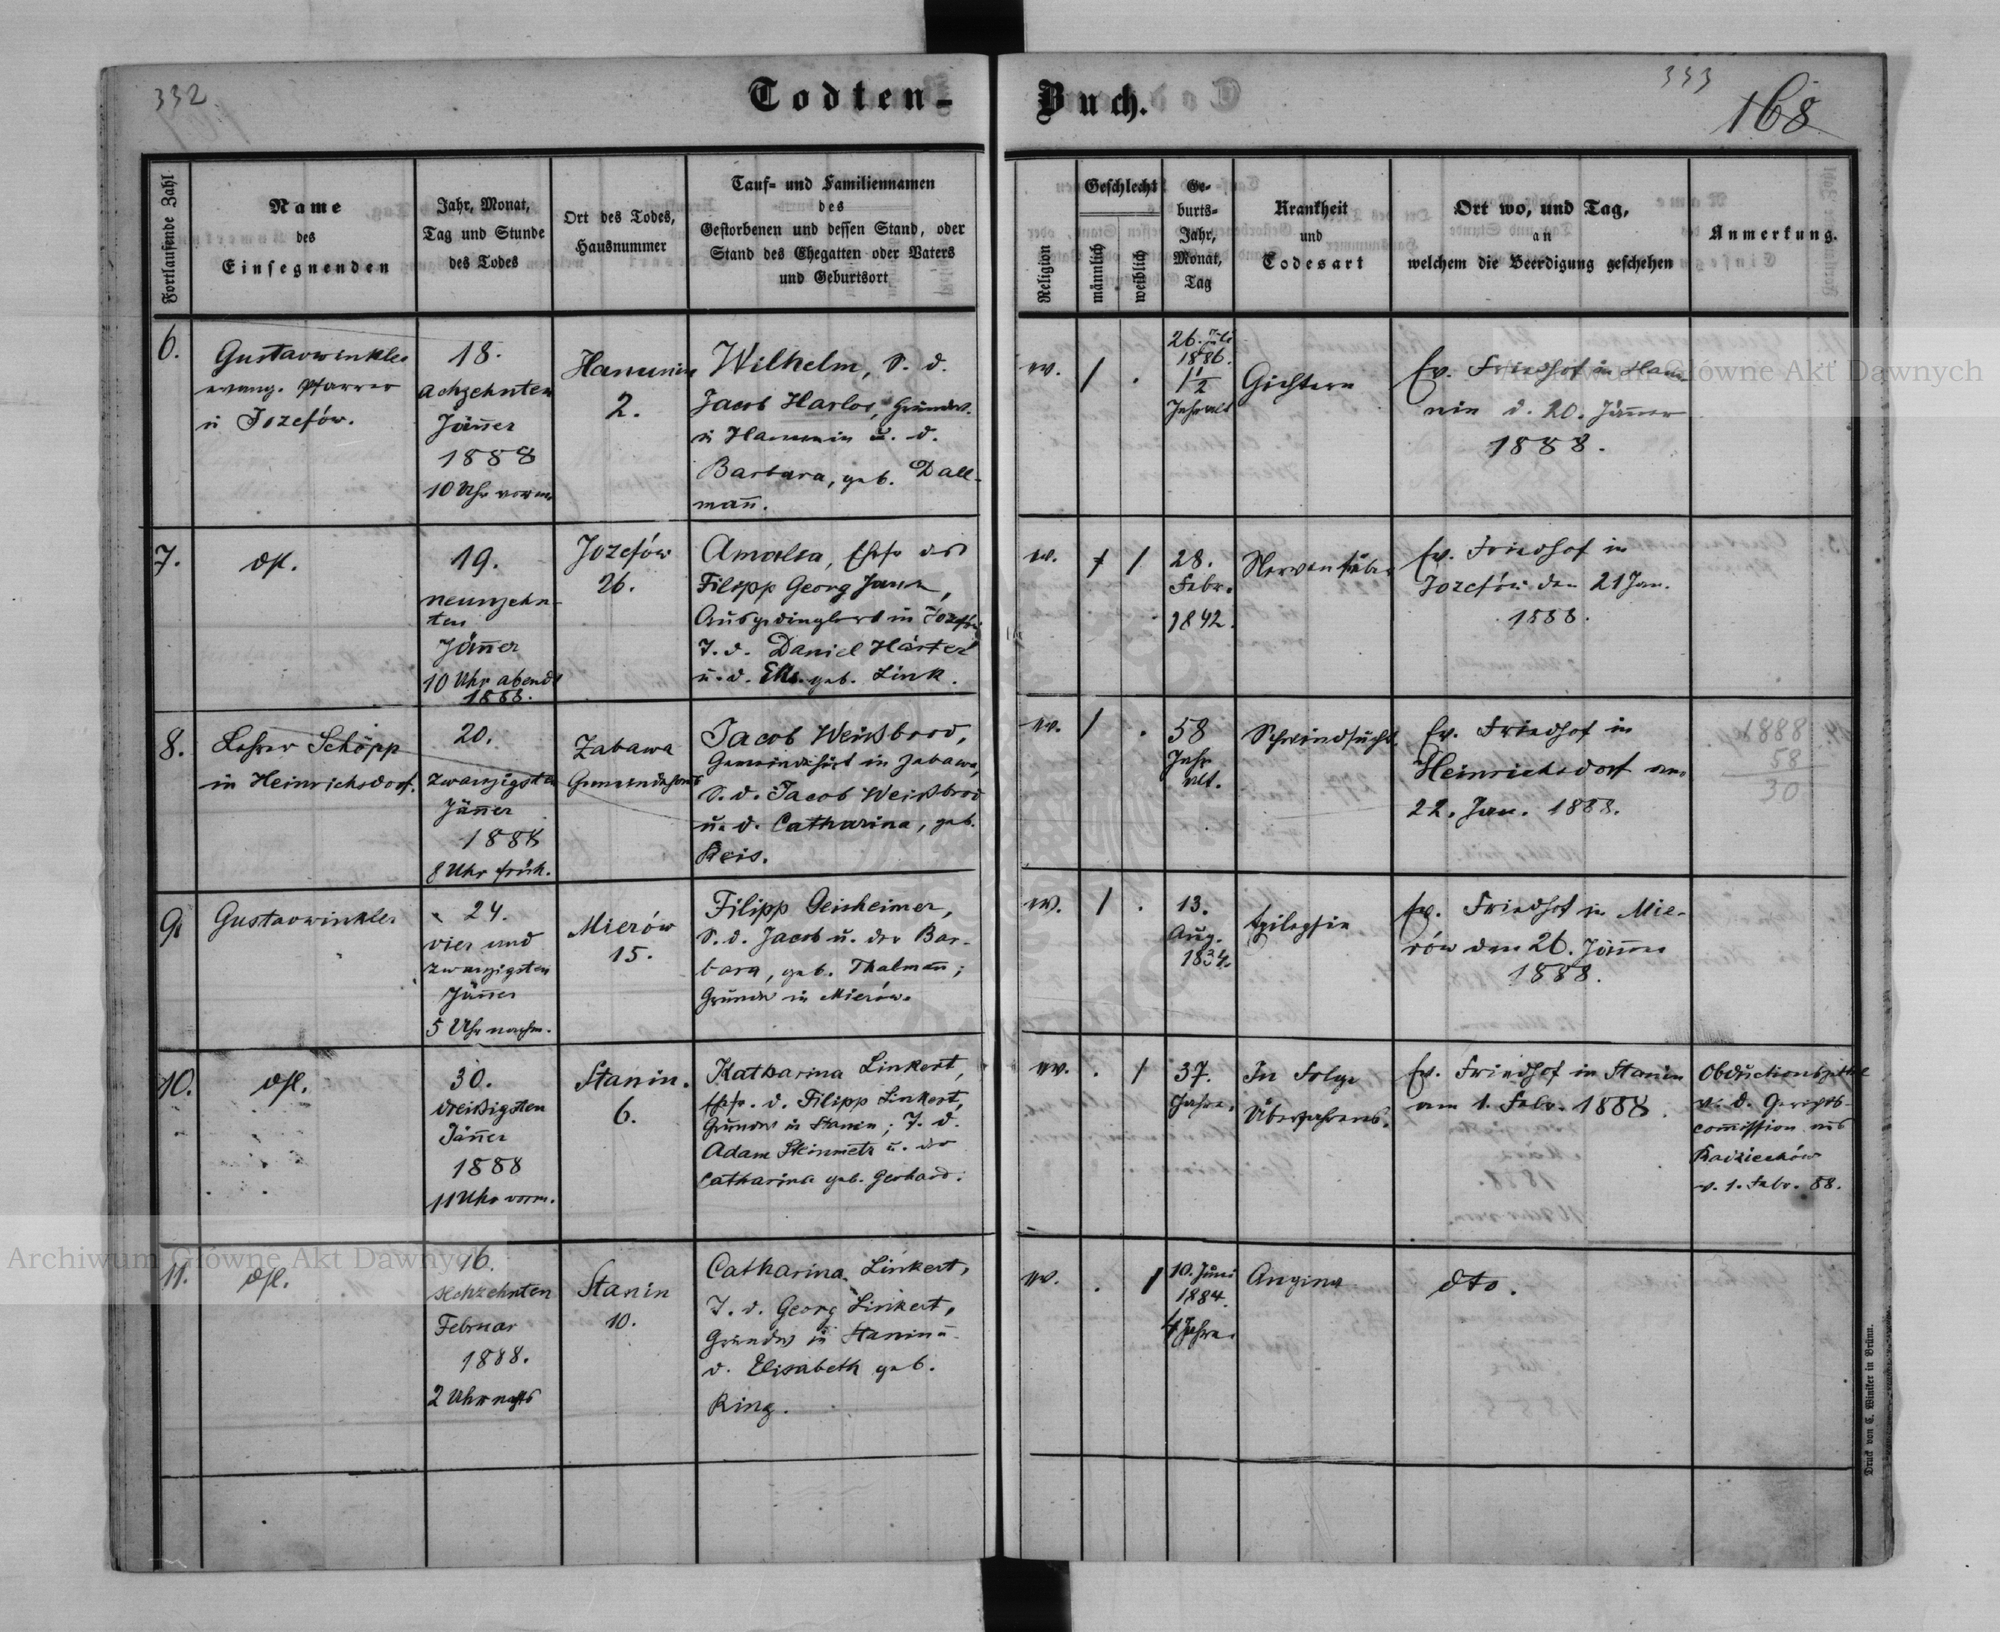 332
Todten-
Buch.
333
168
Fortlaufende Zahl
Name
des
Einsegnenden
Jahr, Monat,
Tag und Stunde
des Todes
Ort des Todes,
Hausnummer
Tauf- und Familiennamen
des
Gestorbenen und dessen Stand, oder
Stand des Ehegatten oder Vaters
und Geburtsort
Religion
Geschlecht
männlich
weiblich
Ge-
burts-
Jahr,
Monat,
Tag
Krankheit
und
Todesart
Ort wo, und Tag,
an
welchem die Beerdigung geschehen
Anmerkung.
6.
Gustav Winkler
evang. Pfarrer
in Jozefów.
18.
achzehnten
Jänner
1888
10 Uhr vorm.
Hanunin
2.
Wilhelm, S. d.
Jacob Harlos, Grundw.
in Hanunin u. d.
Barbara, geb. Dall-
mann.
ev.
/
.
26. Juli
1886.
1 1/2
Jahr alt
Gichtern
Ev. Friedhof in Hanu-
nin d. 20. Jänner
1888.
7.
dsl.
19.
neunzehn-
ten
Jänner
10 Uhr abends
1888.
Jozefów
26.
Amalia, Ehefr. des
Filipp Georg
Ausgedinglers in Jozefów
T. d. Daniel Härter
u. d. Elis. geb. Link.
ev.
/
28.
Febr.
1842.
Nervenfieber
Ev. Friedhof in
Jozefów den 21 Jan.
1888.
8.
Lehrer Schöpp
in Heinrichsdorf.
20.
zwanzigsten
Jänner
1888
8 Uhr früh.
Zabawa
Jacob Weißbrod,
Gemeindehirt in Zabawa,
S. d. Jacob Weißbrod
u. d. Catharina, geb.
Reis.
ev.
/
.
58
Jahr
alt.
Schwindsucht.
Ev. Friedhof in
Heinrichsdorf am
22. Jan. 1888.
1888
58
30
9.
Gustav Winkler
24.
vier und
zwanzigsten
Jänner
5 Uhr nachm.
Mierów
15.
Filipp Geisheimer,
S. d. Jacob u. der Bar-
bara, geb. Thalmann;
Grundw. in Mierów.
ev.
/
.
13.
Aug.
1834.
Epilepsie
Ev. Friedhof in Mie-
rów den 26. Jänner
1888.
10.
dsl.
30.
dreißigsten
Jänner
1888
11 Uhr vorm.
Stanin.
6.
Katharina Linkert,
Ehefr. d. Filipp Linkert,
Grundw. in Stanin; T. d.
Adam Steinmetz u. der
Catharina geb. Gerhard.
ev.
.
/
37.
Jahre.
In Folge
Überfahrens.
Ev. Friedhof in Stanin
am 1. Febr. 1888.
Obductionszettel
v. d. Gerichts-
commission aus
Radziechów
v. 1. Febr. 88.
11.
dsl.
16.
sechzehnten
Februar
1888.
2 Uhr nachts
Stanin
10.
Catharina Linkert,
T. d. Georg Linkert,
Grundw. in Stanin u.
d. Elisabeth geb.
Ring.
ev.
.
/
10. Juni
1884.
4 Jahre.
Angina
dto.
Druck von C. Winiker in Brünn.
Archiwum Główne Akt Dawnych
Archiwum Główne Akt Dawnych